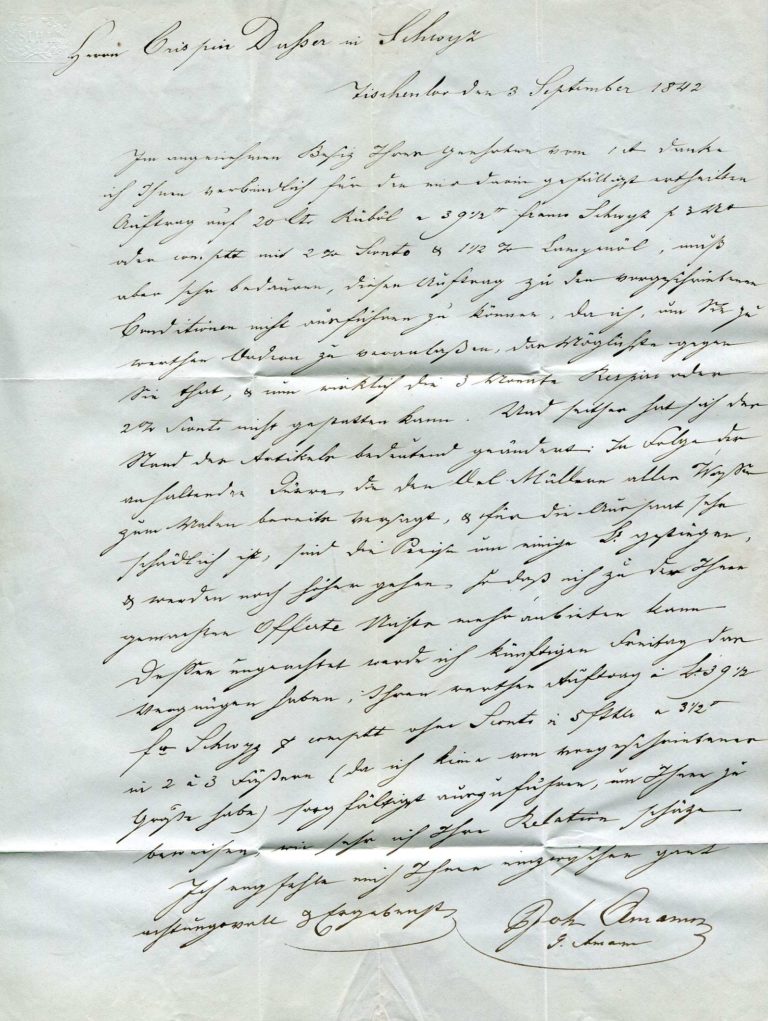 Herrn Crispin Dußer in Schwyz
Tischenloo den 3 September 1842
Im angenehmen Besiz Ihres Geehrten vom 1 dt danke
ich Ihnen verbindlich für den mir darin gefälligst ertheilten
Auftrag auf 20 Ctr Rüböl a 39 1/2 franco Schwyz p 3 Mt
oder comptt mit 2 % Sconto & 1 1/2 % Lampenöl, muß
aber sehr bedauren, diesen Auftrag zu den vorgeschriebenen
Conditionen nicht ausführen zu können, da ich, um Sie zu
werthen Ordren zu veranlaßen, das Möglichste gegen
Sie that, & nun wirklich die 3 Monate Respiro oder
2 % Sconto nicht gestatten kann. Und seither hat sich der
Stand des Artikels bedeutend geändert: In Folge der
anhaltenden Dürre, die den Oel Müllern alles Waßer
zum Malen bereits versagt, & für die Aussaat sehr
schädlich ist, sind die Preise um einige gestiegen,
& werden noch höher gehen, so daß ich zu der Ihnen
gemachten Offerte Nichts mehr anbieten kann
Dessen ungeachtet werde ich künftigen Freitag das
Vergnügen haben, Ihren werthen Auftrag à 39 1/2
fco Schwyz & comptt ohne Sconto in 5 a 3 1/2
in 2 à 3 Fäßern (da ich keine von vorgeschriebener
Größe habe) sorgfältigst auszuführen, um Ihnen zu
beweisen, wie sehr ich Ihre Relation schäze
Ich empfehle mich Ihnen inzwischen ganz
achtungsvoll & Ergebenst
Joh Amann
J. Amann